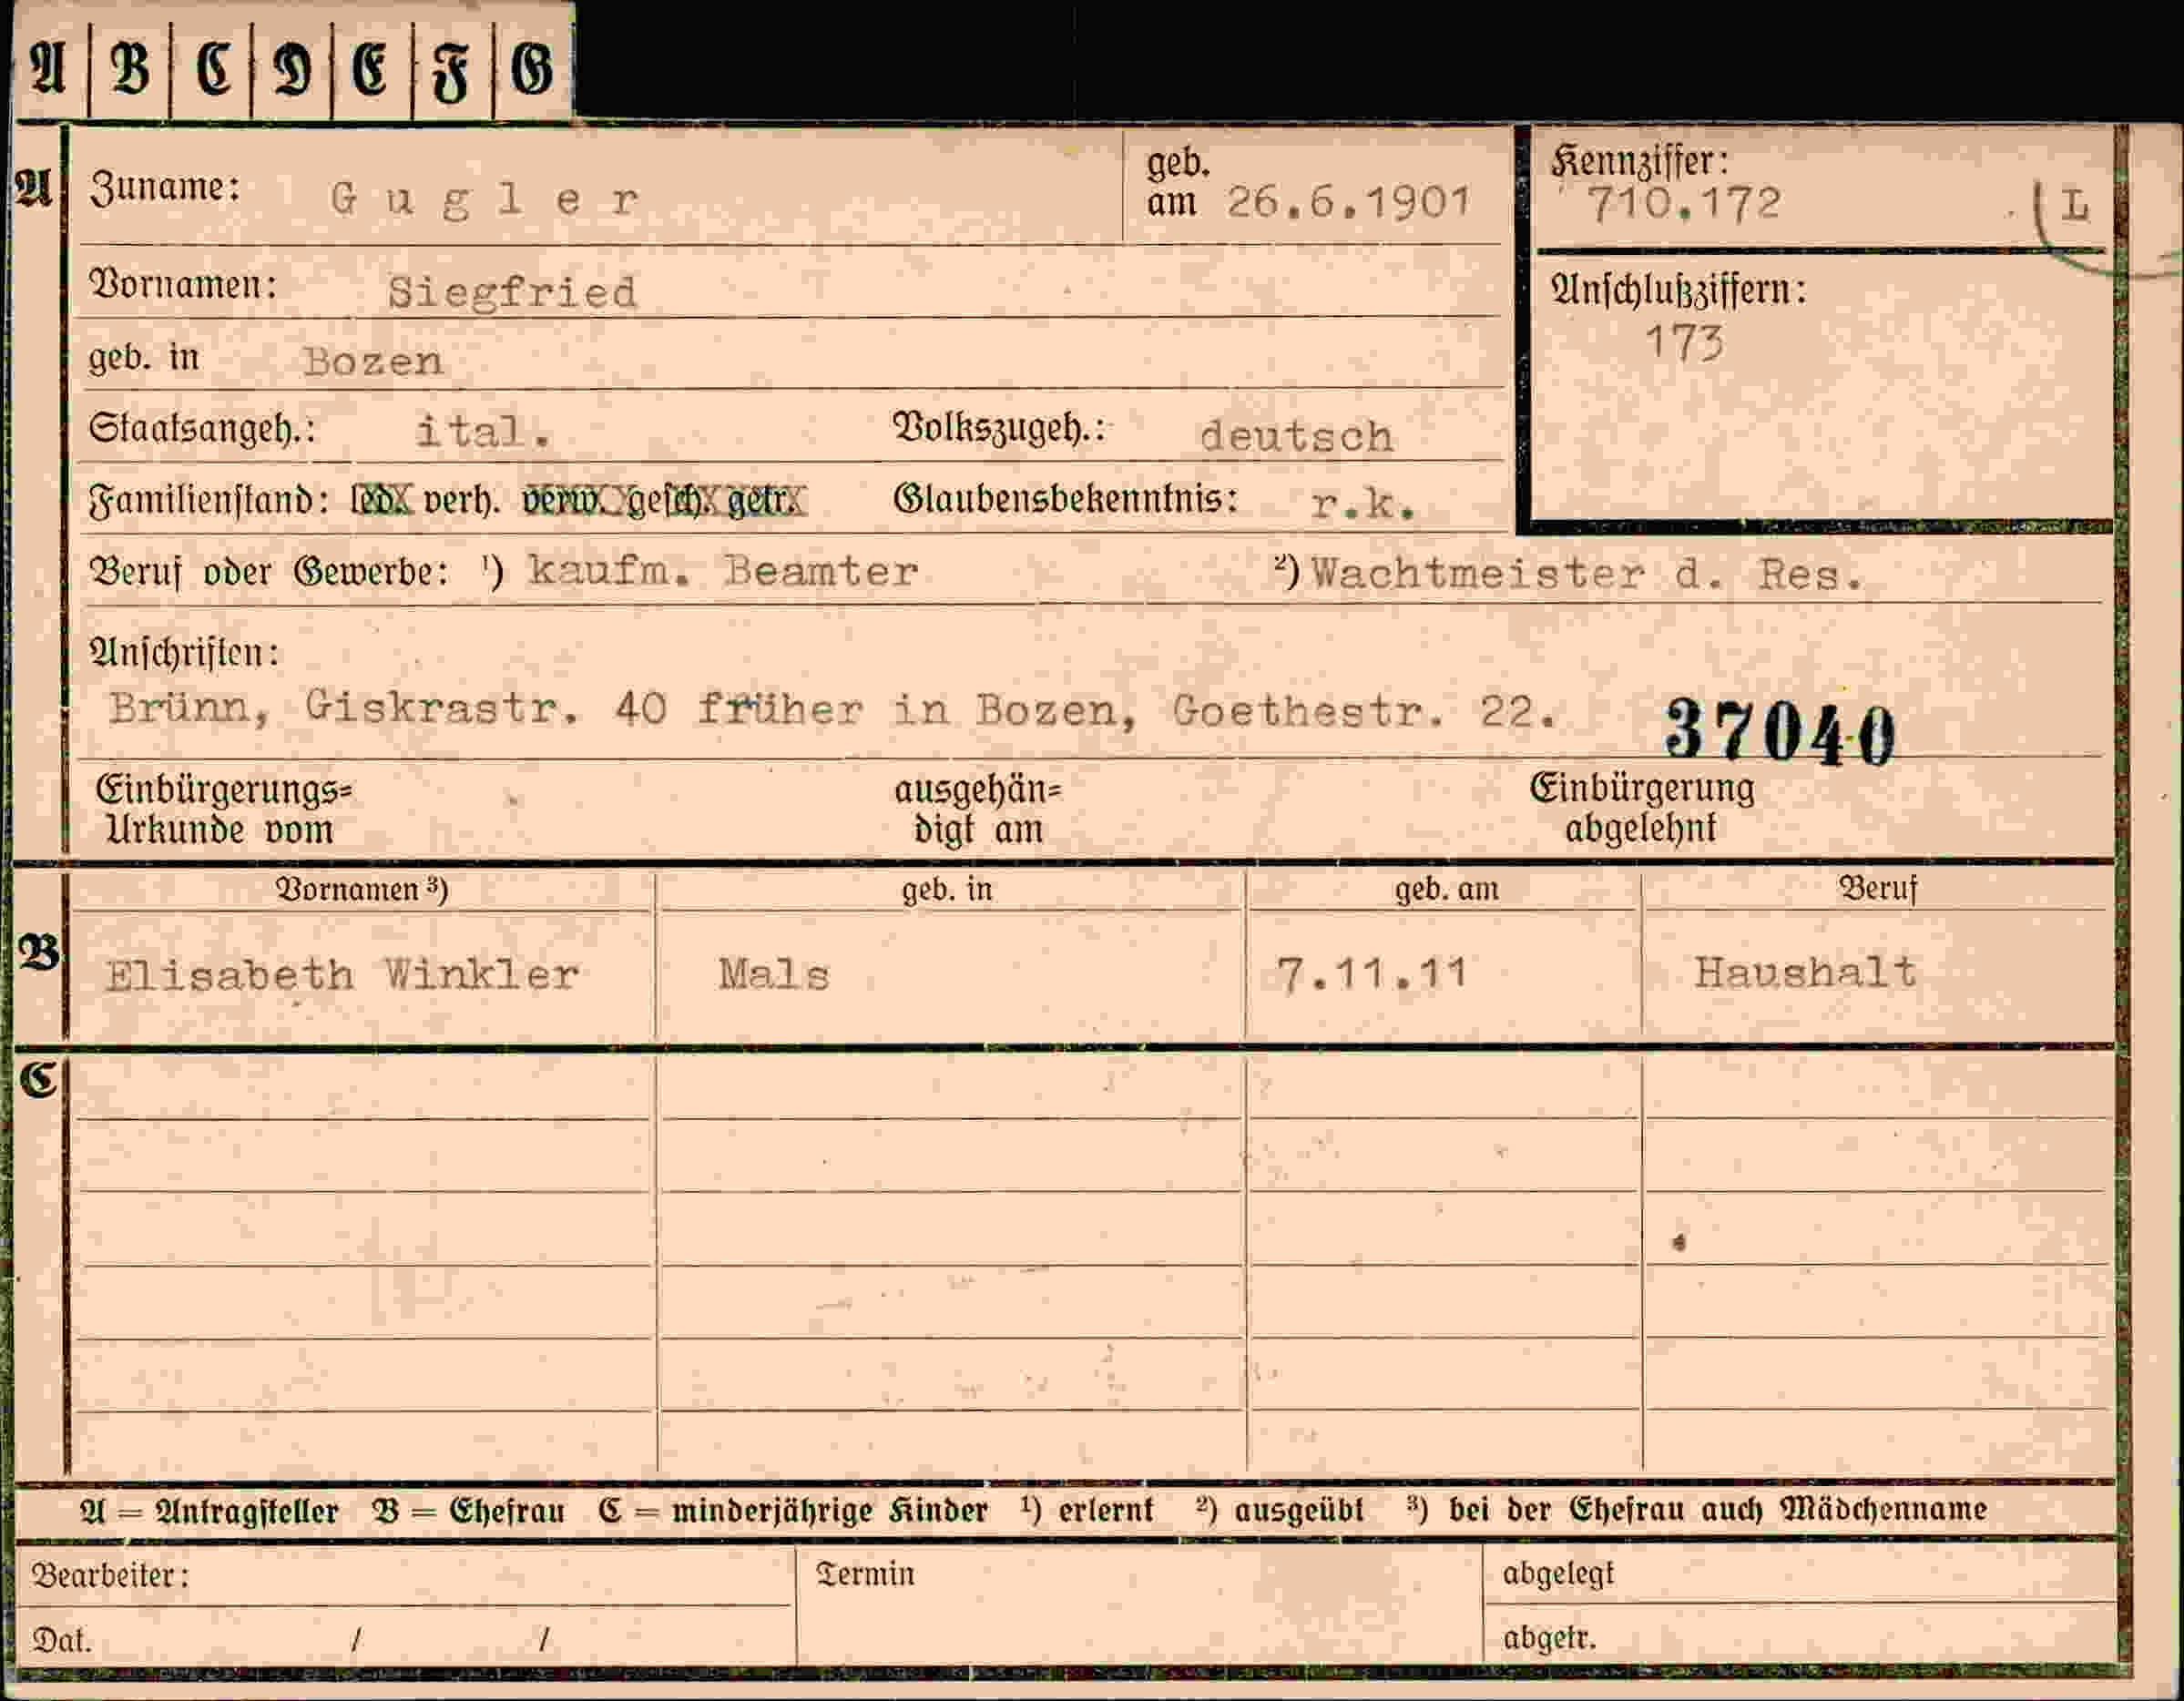 A B C D E F G
A Zuname: Gugler geb. am 26.6.1901 Kennziffer: 710.172 L
Vornamen: Siegfried Anschlußziffern: 173
geb. in Bozen
Staatsangeh.: ital. Volkszugeh.: deutsch
Familienstand: led. verh. verw. gesch. getr. Glaubensbekenntnis: r.k.
Beruf oder Gewerbe: ¹) kaufm. Beamter ²) Wachtmeister d. Res.
Anschriften:
Brünn, Giskrastr. 40 früher in Bozen, Goethestr. 22. 37040
Einbürgerungs= ausgehän= Einbürgerung
Urkunde vom digt am abgelehnt
Vornamen ³) geb. in geb. am Beruf
B Elisabeth Winkler Mals 7.11.11 Haushalt
C
A = Antragsteller B = Ehefrau C = minderjährige Kinder ¹) erlernt ²) ausgeübt ³) bei der Ehefrau auch Mädchenname
Bearbeiter: Termin abgelegt
Dat. / / abgetr.